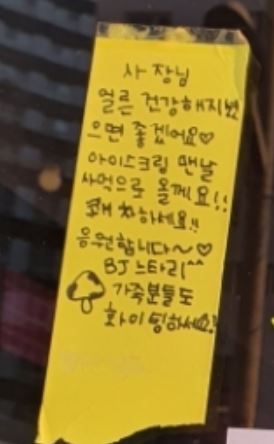 사장님
얼른 건강해지셨
으면 좋겠어요♡
아이스크림 맨날
사먹으로 올께요!!
쾌차하세요!!
응원합니다~♡
BJ 느타리^^
가족분들도
화이팅하세요!